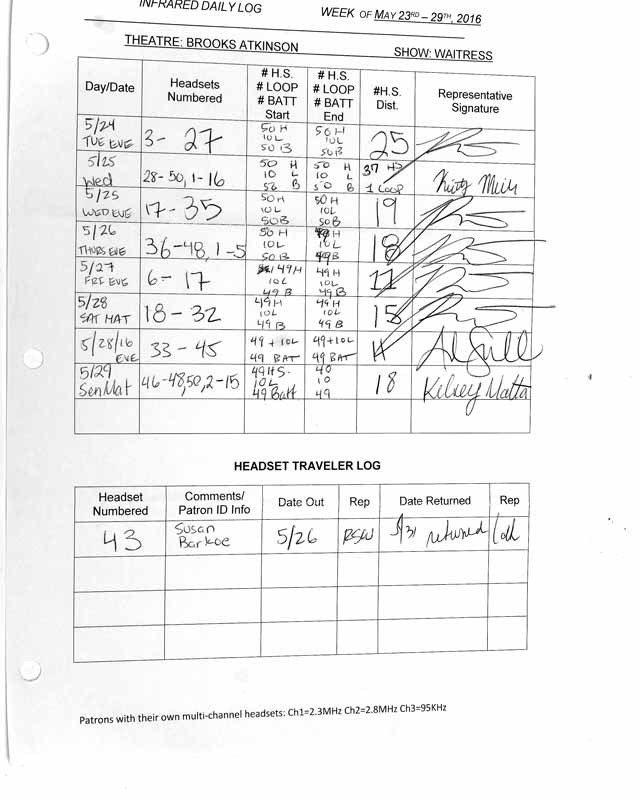 INFRARED DAILY LOG WEEK OF MAY 23RD – 29TH, 2016
THEATRE: BROOKS ATKINSON SHOW: WAITRESS
Day/Date Headsets Numbered # H.S. # LOOP # BATT Start # H.S. # LOOP # BATT End #H.S. Dist. Representative Signature
5/24 TUE EVE 3- 27 50 H 10L 50 B 50 H 10L 50B 25
5/25 Wed 28-50, 1-16 50 H 10 L 50 B 50 H 10 L 50 B 37 HS 1 Loop
5/25 WED EVE 17-35 50H 10L 50B 50H 10L 50B 19
5/26 THURS EVE 36-48, 1-5 50 H 10L 50 B 49H 10L 49B 18
5/27 FRI EVE 6-17 49H 10L 49 B 49H 10L 49B
5/28 SAT MAT 18-32 49H 10L 49 B 49H 10L 49B 15
5/28/16 EVE 33-45 49 + 10L 49 BAT 49+10L 49 BAT
5/29 Sun Mat 46-48,50,2-15 49HS. 10L 49 Batt 40 10 49 18 Kelsey Matta
HEADSET TRAVELER LOG
Headset Numbered Comments/ Patron ID Info Date Out Rep Date Returned Rep
43 Susan Barkoe 5/26 RSW 5/31 returned
Patrons with their own multi-channel headsets: Ch1=2.3MHz Ch2=2.8MHz Ch3=95KHz